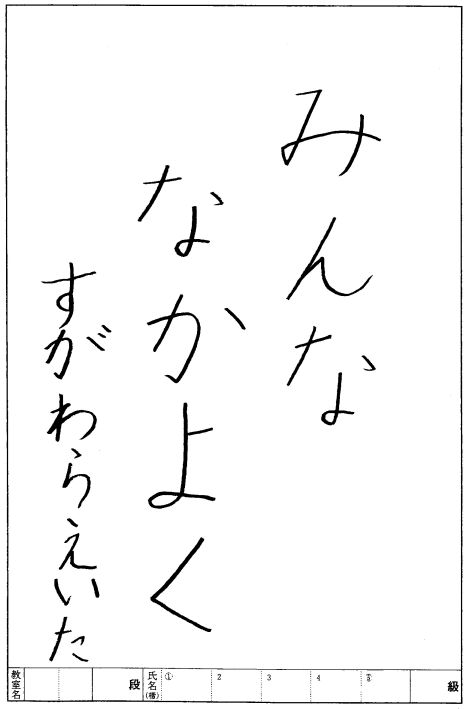 みんな
なかよく
すがわらえいた
教室名 段 氏名(櫂) ① 2 3 4 5 級